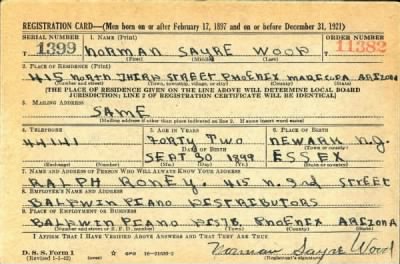 REGISTRATION CARD—(Men born on or after February 17, 1897 and on or before December 31, 1921)
SERIAL NUMBER 1. NAME (Print) ORDER NUMBER
T 1399 NORMAN SAYRE WOOD T 11382
(First) (Middle) (Last)
2. PLACE OF RESIDENCE (Print)
415 NORTH THIRD STREET PHOENIX MARICOPA ARIZONA
(Number and street) (Town, township, village, or city) (County) (State)
[THE PLACE OF RESIDENCE GIVEN ON THE LINE ABOVE WILL DETERMINE LOCAL BOARD
JURISDICTION; LINE 2 OF REGISTRATION CERTIFICATE WILL BE IDENTICAL]
3. MAILING ADDRESS
SAME
[Mailing address if other than place indicated on line 2. If same insert word same]
4. TELEPHONE 5. AGE IN YEARS 6. PLACE OF BIRTH
44141 FORTY TWO NEWARK N.J.
DATE OF BIRTH (Town or county)
SEPT. 30 1899 ESSEX
(Exchange) (Number) (Mo.) (Day) (Yr.) (State or country)
7. NAME AND ADDRESS OF PERSON WHO WILL ALWAYS KNOW YOUR ADDRESS
RALPH RONEY. 415 N. 3RD STREET
8. EMPLOYER'S NAME AND ADDRESS
BALDWIN PIANO DISTRIBUTORS
9. PLACE OF EMPLOYMENT OR BUSINESS
BALDWIN PIANO DISTB, PHOENIX ARIZONA
(Number and street or R. F. D. number) (Town) (County) (State)
I AFFIRM THAT I HAVE VERIFIED ABOVE ANSWERS AND THAT THEY ARE TRUE.
D. S. S. Form 1
(Revised 1-1-42) (over) GPO 16-21630-2
Norman Sayre Wood